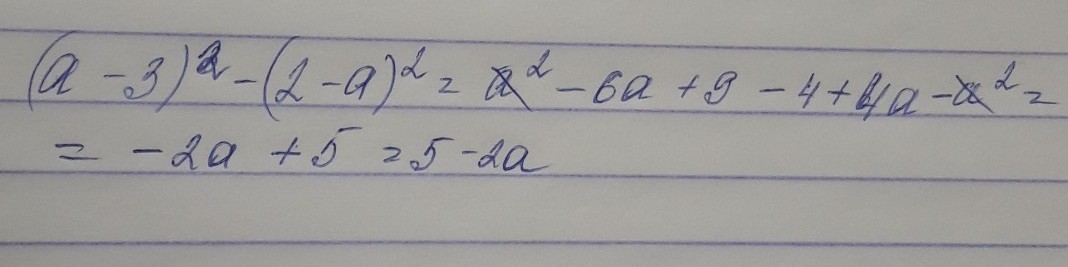 (a - 3)² - (2 - a)² = a² - 6a + 9 - 4 + 4a - a² =
= - 2a + 5 = 5 - 2a